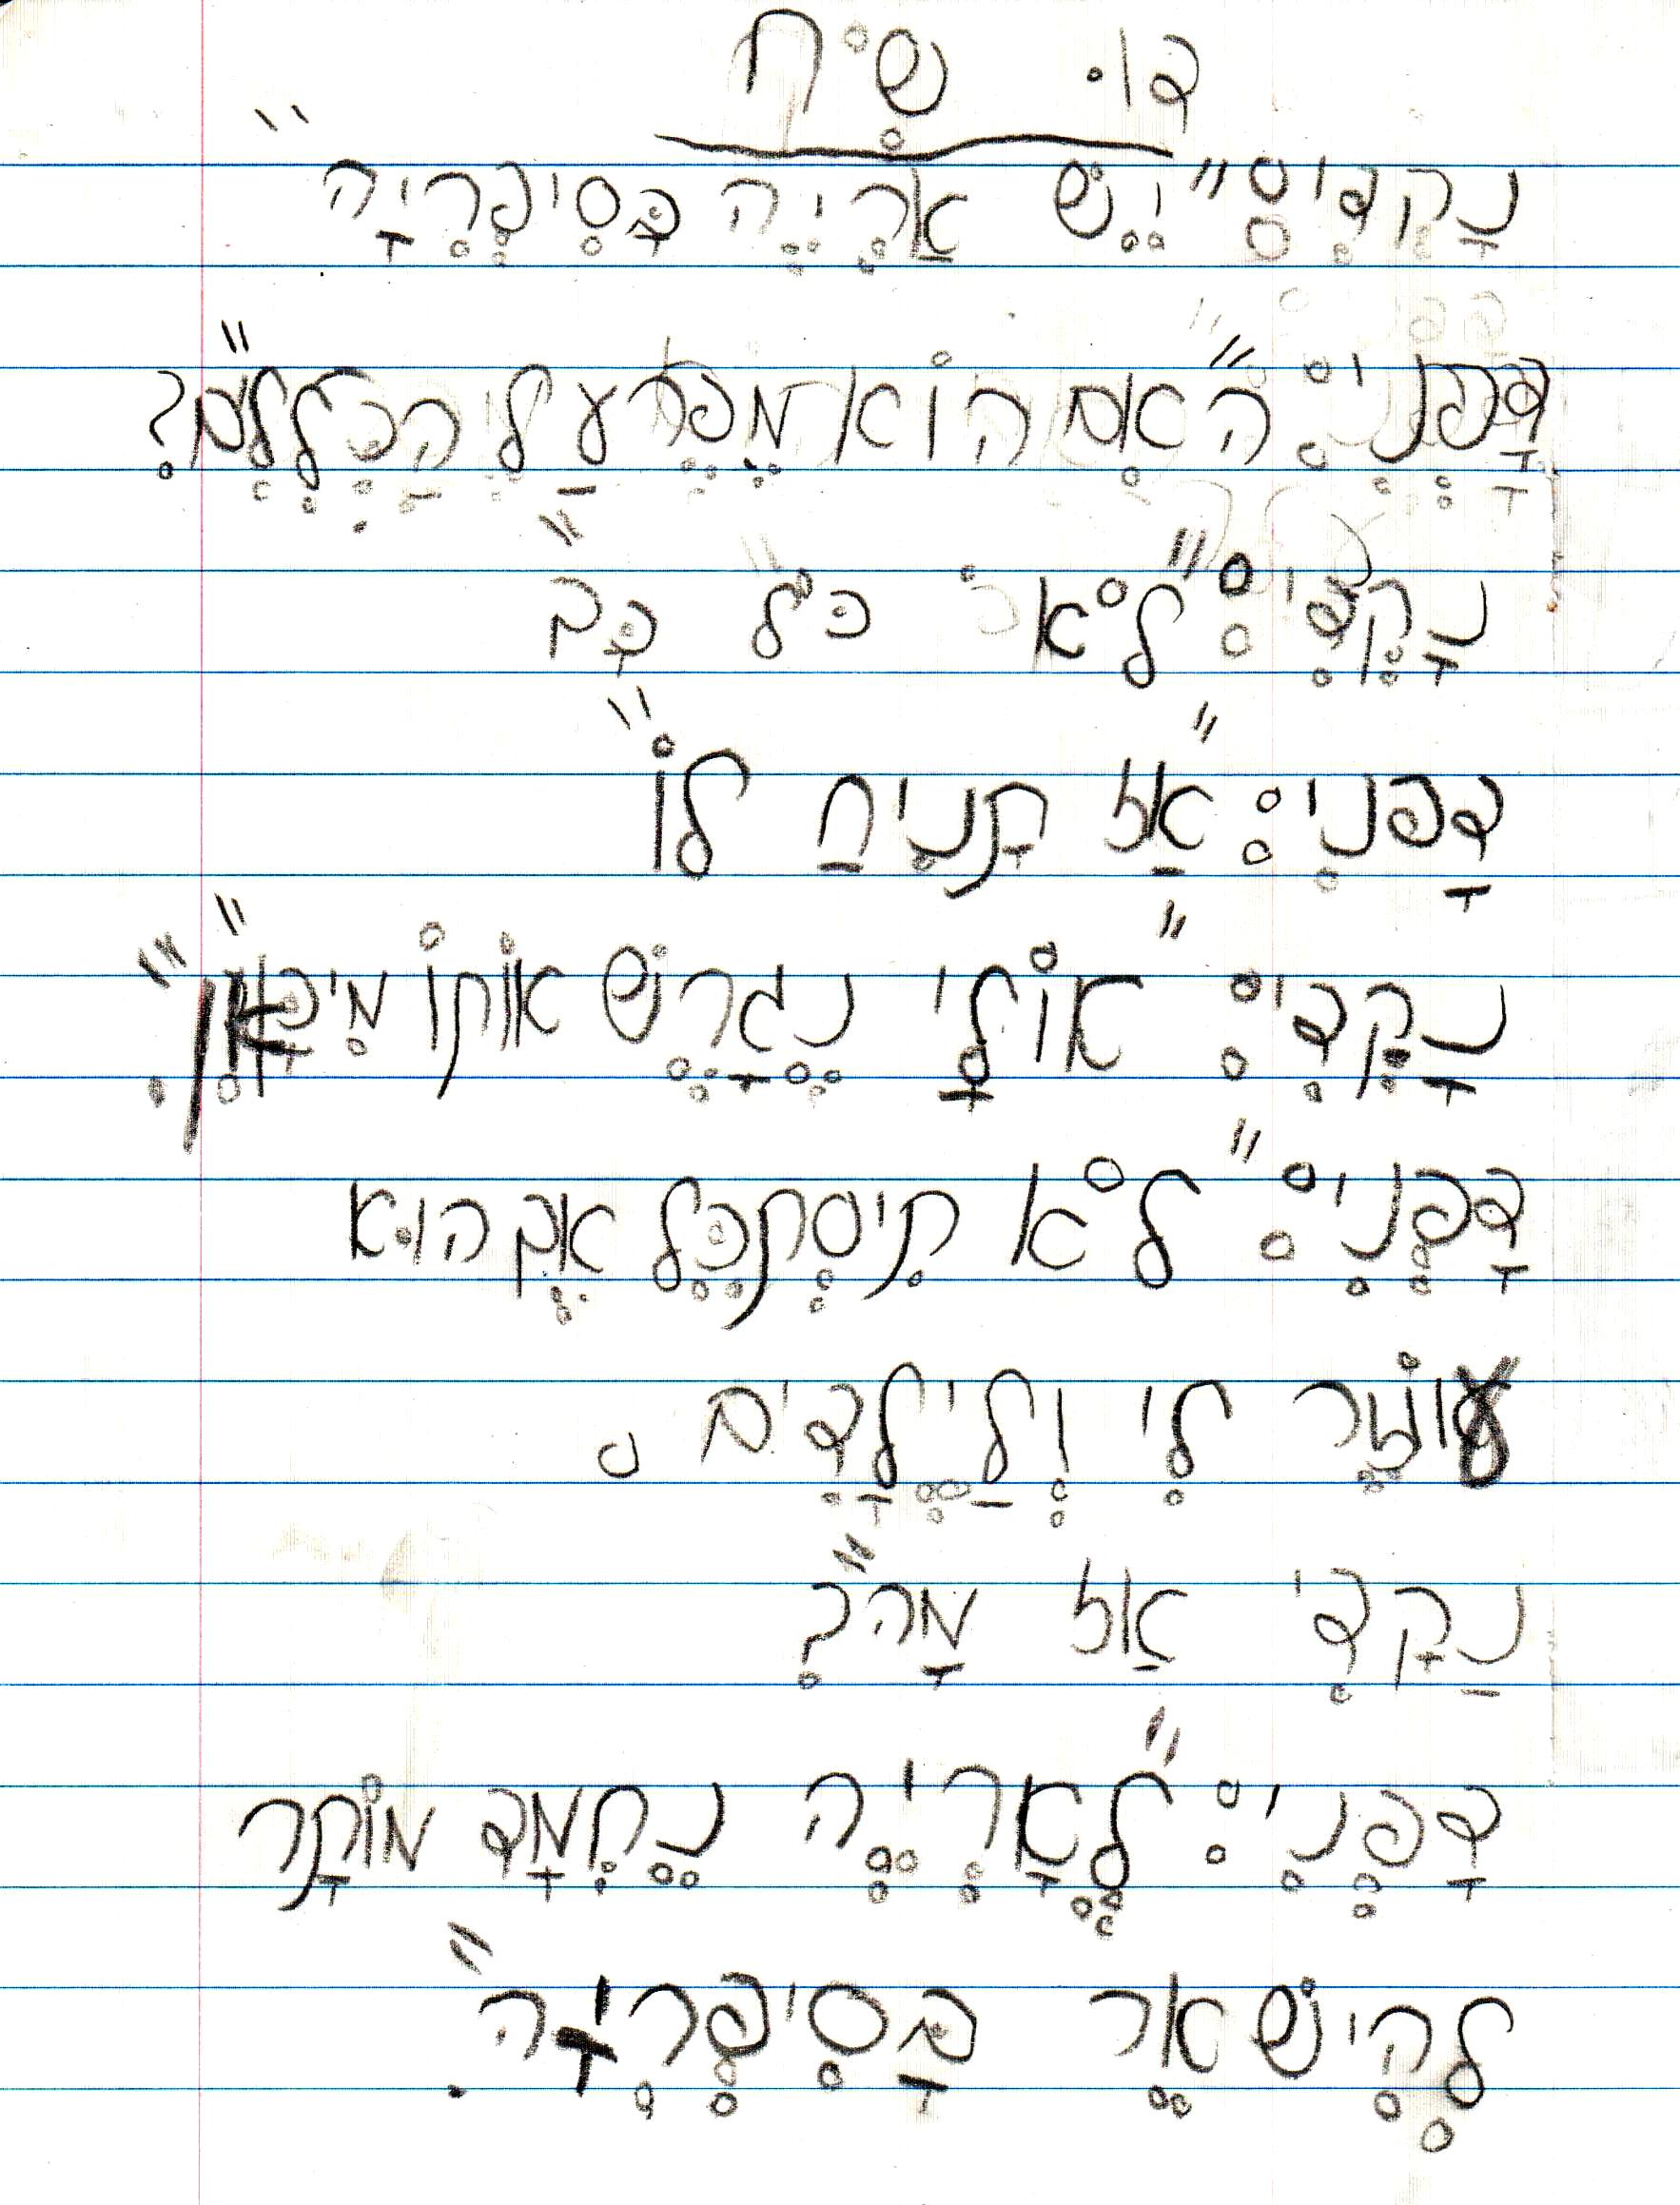 דו שיח
נקדים: "יש אריה בספריה"
דפני: "האם הוא מפר על הכללים?"
נקדי: "לא כל כך"
דפני: "אז תניח לו"
נקדי: "אולי נגרש אותו מיכאן".
דפני: "לא תיסתכל איך הוא
עוזר לי ולילדים.
נקדי אז מה?"
דפני: "לאריה נחמד מותר
להישאר בסיפריה".